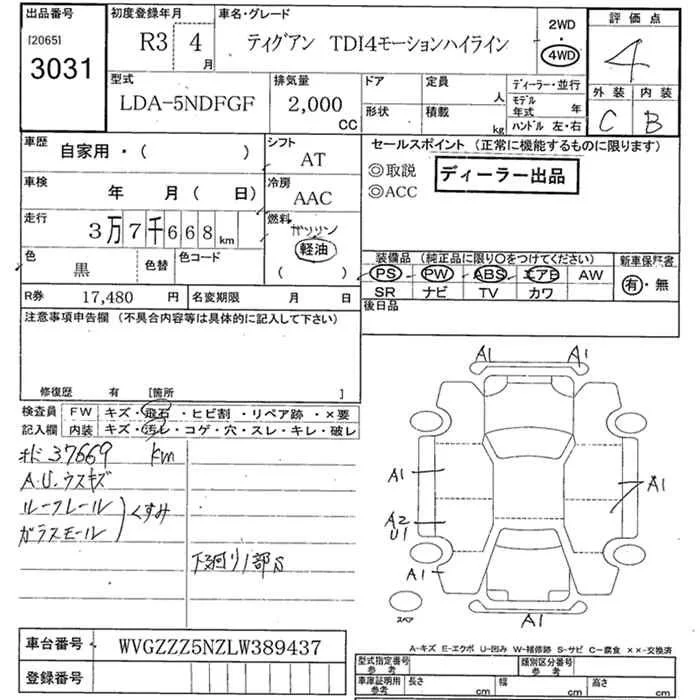 出品番号 [2065] 3031
初度登録年月 R3 4 月
車名・グレード ティグアン TDI4モーションハイライン
2WD 4WD
評価点 4
外装 C 内装 B
型式 LDA-5NDFGF
排気量 2,000 CC
ドア 形状
定員 人 積載 kg
ディーラー・並行
モデル年式 年
ハンドル 左・右
車歴 自家用・( )
シフト AT
車検 年 月( 日)
冷房 AAC
走行 3万7千668km
燃料 ガソリン 軽油 ( )
色 黒 色替 色コード
R券 17,480 円 名変期限 月 日
セールスポイント (正常に機能するものに限ります)
◎取説 ディーラー出品
◎ACC
装備品 (純正品に限り○をつけてください)
PS PW ABS エアB AW
SR ナビ TV カワ
新車保証書 有・無
後日品
注意事項申告欄 (不具合内容等は具体的に記入して下さい)
修復歴 有 [箇所 ]
検査員記入欄
FW キズ・飛石・ヒビ割・リペア跡・×要
内装 キズ・汚レ・コゲ・穴・スレ・キレ・破レ
37669 km
A.U.ウスキズ
ルーフレール
ガラスモール
くすみ
下廻り1部S
A1 A1
A1 A1
A2
U1
A1
A1
スペア
A-キズ E-エクボ U-凹み W-補修跡 S-サビ C-腐食 ××-交換済
車台番号 WVGZZZ5NZLW389437
登録番号
型式指定番号 参考 類別区分番号 参考
車庫証明用 参考 長さ cm 幅 cm 高さ cm